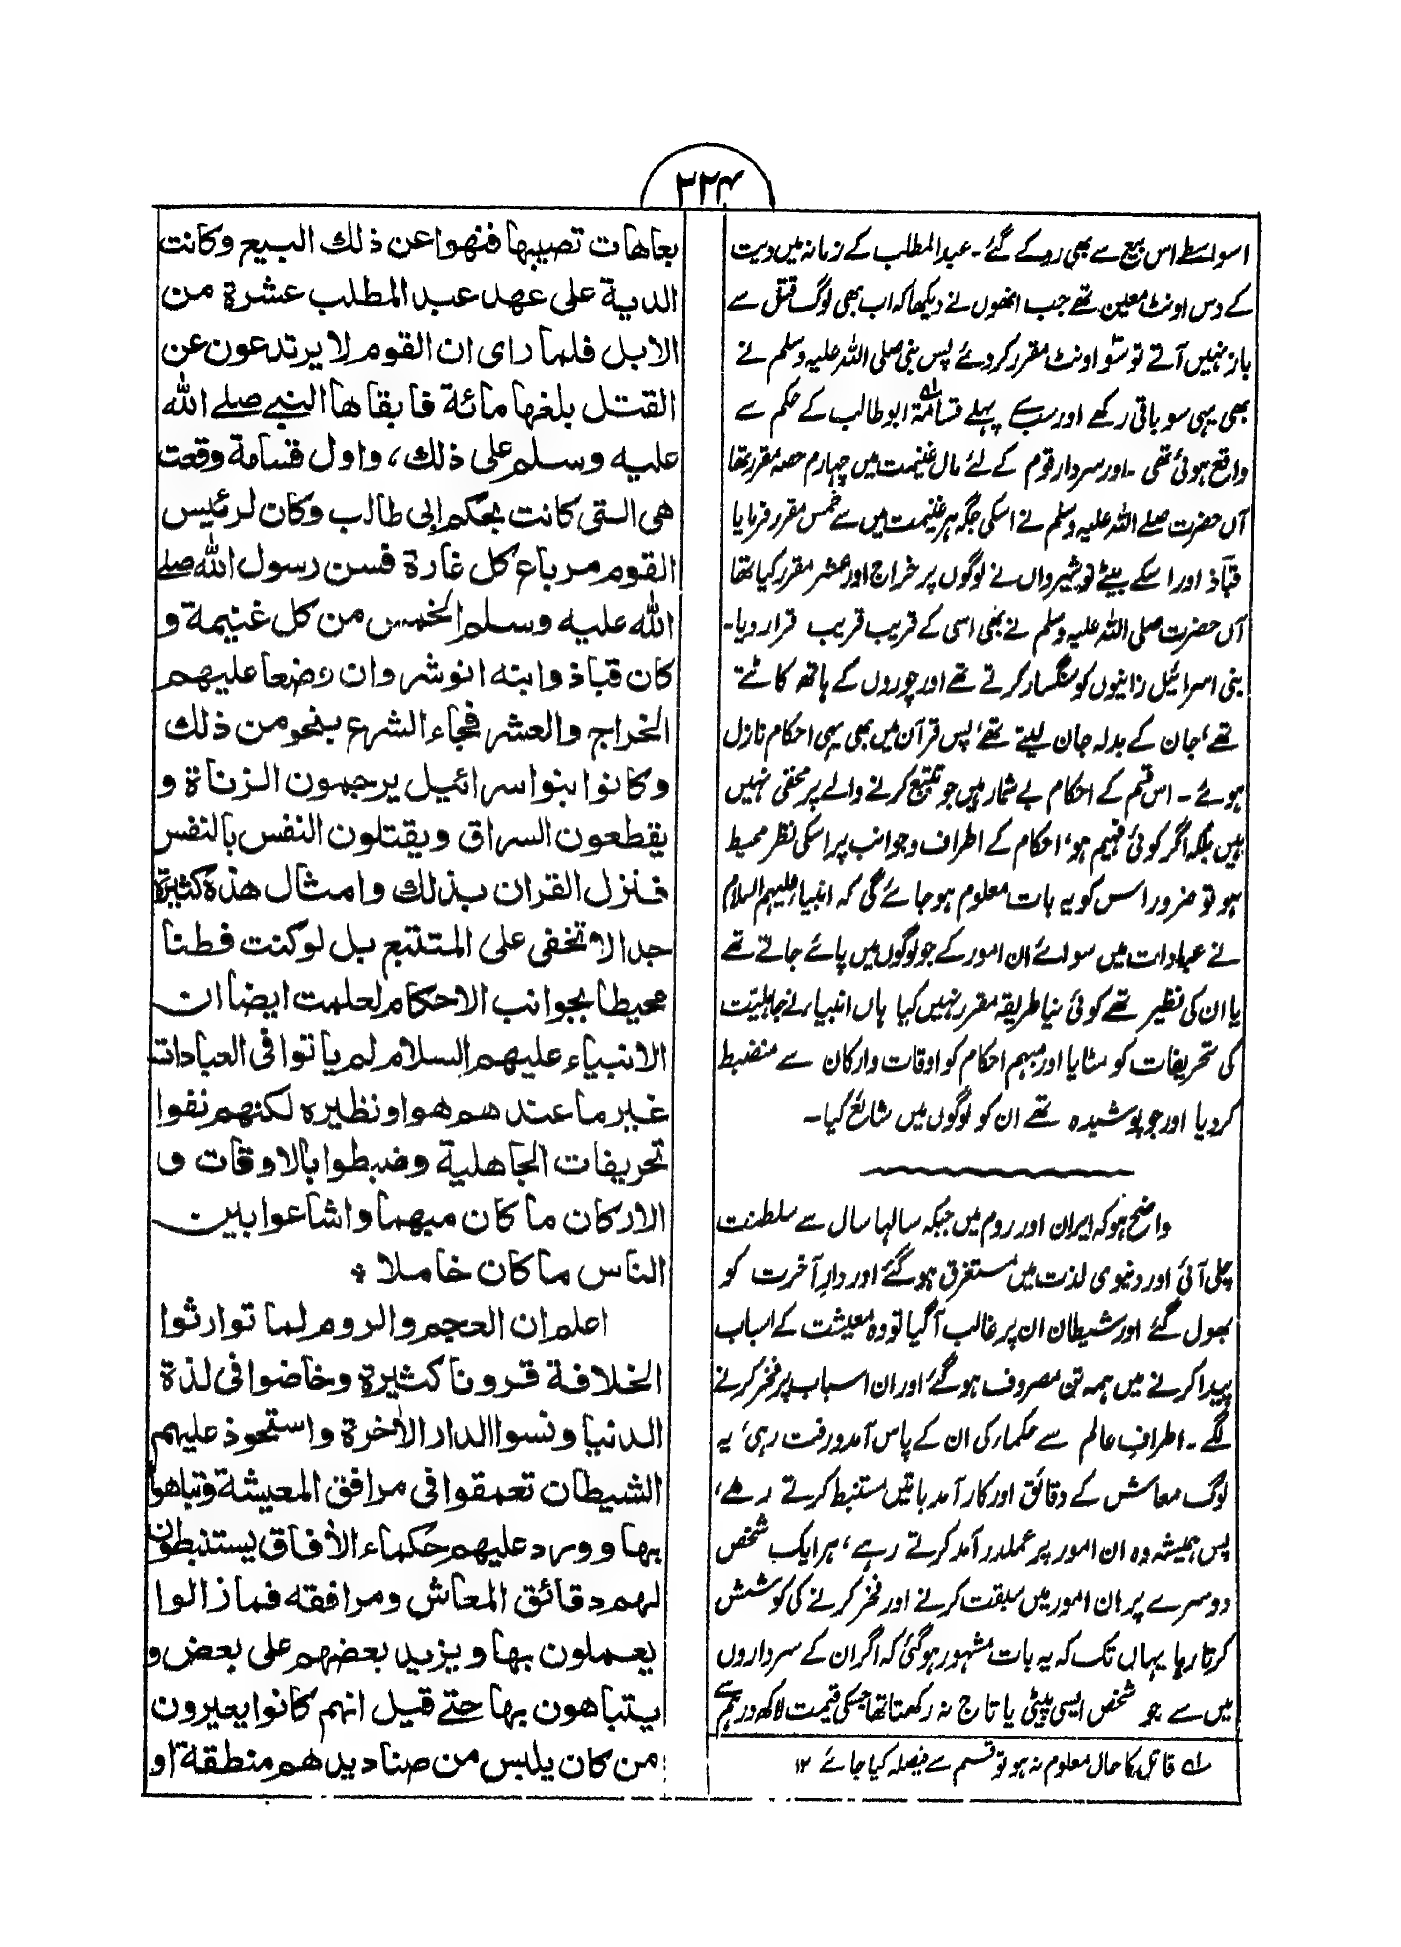 ۲۲۴
اسواسطے اس بیع سے بھی روکے گئے۔ عبدالمطلب کے زمانہ میں دیت
کے دس اونٹ معین تھے جب انھوں نے دیکھا کہ اب بھی لوگ قتل سے
باز نہیں آتے تو سَو اونٹ مقرر کر دئے پس نبی صلی اللہ علیہ وسلم نے
بھی یہی سو باقی رکھے اور سب سے پہلے قسامۃ ابو طالب کے حکم سے
واقع ہوئی تھی۔ اور سردار قوم کے لئے مال غنیمت میں چہارم حصہ مقرر تھا
آں حضرت صلے اللہ علیہ وسلم نے اسکی جگہ ہر غنیمت میں سے خمس مقرر فرمایا
قباذ اور اسکے بیٹے نوشیرواں نے لوگوں پر خراج اور عشر مقرر کیا تھا
آں حضرت صلی اللہ علیہ وسلم نے بھی اسی کے قریب قریب قرار دیا۔
بنی اسرائیل زانیوں کو سنگسار کرتے تھے اور چوروں کے ہاتھ کاٹتے
تھے، جان کے بدلہ جان لیتے تھے، پس قرآن میں بھی یہی احکام نازل
ہوئے۔ اس قسم کے احکام بے شمار ہیں جو تتبع کرنے والے پر مخفی نہیں
ہیں بلکہ اگر کوئی فہیم ہو، احکام کے اطراف وجوانب پر اسکی نظر محیط
ہو تو ضرور اس کو یہ بات معلوم ہو جائے گی کہ انبیاء علیہم السلام
نے عبادات میں سوائے ان امور کے جو لوگوں میں پائے جاتے تھے
یا ان کی نظیر تھے کوئی نیا طریقہ مقرر نہیں کیا ہاں انبیاء نے جاہلیت
کی تحریفات کو مٹایا اور مبہم احکام کو اوقات وارکان سے منضبط
کر دیا اور جو پوشیدہ تھے ان کو لوگوں میں شائع کیا۔
واضح ہو کہ ایران اور روم میں جبکہ سالہا سال سے سلطنت
چلی آئی اور دنیوی لذت میں مستغرق ہو گئے اور دارِ آخرت کو
بھول گئے اور شیطان ان پر غالب آگیا تو وہ معیشت کے اسباب
پیدا کرنے میں ہمہ تن مصروف ہو گئے اور ان اسباب پر فخر کرنے
لگے۔ اطرافِ عالم سے حکماء کی ان کے پاس آمد و رفت رہی، یہ
لوگ معاش کے دقائق اور کار آمد باتیں مستنبط کرتے رہے،
پس ہمیشہ وہ ان امور پر عملدرآمد کرتے رہے، ہر ایک شخص
دوسرے پر ان امور میں سبقت کرنے اور فخر کرنے کی کوشش
کرتا رہا یہاں تک کہ یہ بات مشہور ہو گئی کہ اگر ان کے سرداروں
میں سے جو شخص ایسی پیٹی یا تاج نہ رکھتا تھا جسکی قیمت لاکھ درہم سے
لے قاتل کا حال معلوم نہ ہو تو قسم سے فیصلہ کیا جائے ۱۲
بعاهات تصيبها فنهوا عن ذلك البيع وكانت
الدية على عهد عبد المطلب عشرة من
الابل فلما راى ان القوم لا يرتدعون عن
القتل بلغها مائة فابقاها النبي صلے الله
عليه وسلم على ذلك، واول قسامة وقعت
هى التى كانت بحكم ابى طالب وكان لرئيس
القوم مرباع كل غارة فسن رسول الله صلے
الله عليه وسلم الخمس من كل غنيمة و
كان قباذ وابنه انوشروان وضعا عليهم
الخراج والعشر فجاء الشرع بنحو من ذلك
وكانوا بنوا اسرائيل يرجمون الزناة و
يقطعون السراق ويقتلون النفس بالنفس
فنزل القران بذلك وامثال هذه كثيرة
جدا لا تخفى على المتتبع بل لو كنت فطنا
محيطا بجوانب الاحكام لعلمت ايضا ان
الانبياء عليهم السلام لم ياتوا فى العبادات
غير ما عندهم هو او نظيره لكنهم نفوا
تحريفات الجاهلية وضبطوا بالاوقات و
الاركان ما كان مبهما واشاعوا بين
الناس ما كان خاملا *
اعلم ان العجم والروم لما توارثوا
الخلافة قرونا كثيرة وخاضوا فى لذة
الدنيا ونسوا الدار الاخرة واستحوذ عليهم
الشيطان تعمقوا فى مرافق المعيشة وتباهوا
بها وورد عليهم حكماء الأفاق يستنبطون
لهم دقائق المعاش ومرافقه فما زالوا
يعملون بها ويزيد بعضهم على بعض و
يتباهون بها حتے قيل انهم كانوا يعيرون
من كان يلبس من صناديدهم منطقة او